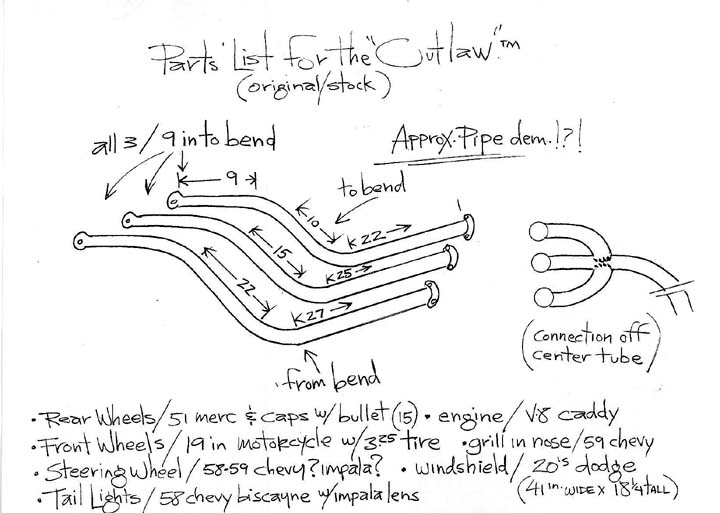 Parts List for the "Outlaw"™
(original/stock)
all 3/9 in to bend
Approx. Pipe dem.!?!
9
to bend
10
22
15
25
22
27
(Connection off
center tube)
from bend
• Rear Wheels/51 merc & caps w/bullet (15) • engine/V-8 caddy
• Front Wheels/19 in motorcycle w/3 25 tire • grill in nose/59 chevy
• Steering Wheel/58-59 chevy? impala? • windshield/20's dodge
• Tail Lights/58 chevy biscayne w/impala lens
(41 in. WIDE X 18 1/4 TALL)